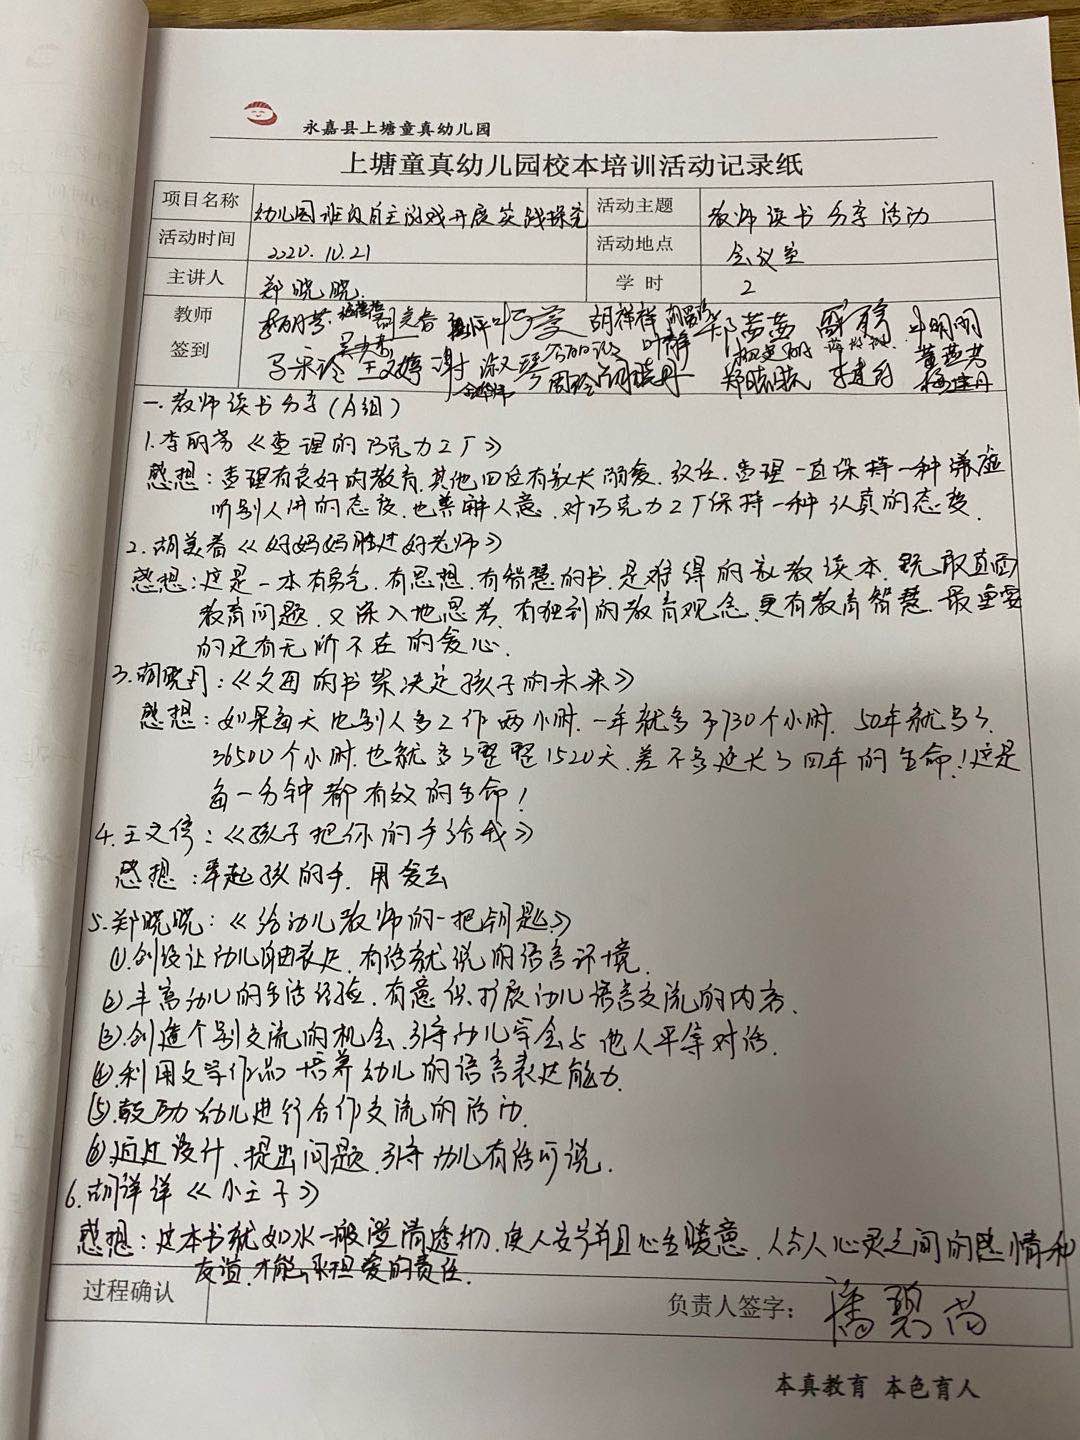 永嘉县上塘童真幼儿园
上塘童真幼儿园校本培训活动记录纸
项目名称 幼儿园班级自主游戏开展实践探究 活动主题 教师读书分享活动
活动时间 2020.10.21 活动地点 会议室
主讲人 郑晓晓 学时 2
教师 李丽芳 胡美春 胡祥祥 叶静 郑茜茜
签到 马采玲 王文婷 谢淑琴 周玲 胡晓丹 郑晓晓 董燕芳 杨建丹
一.教师读书分享(A组)
1.李丽芳《查理的巧克力工厂》
感想:查理有良好的教育.其他四位有家长溺爱.放任.查理一直保持一种谦虚
听别人讲的态度.也善解人意.对巧克力工厂保持一种认真的态度.
2.胡美春《好妈妈胜过好老师》
感想:这是一本有勇气.有思想.有智慧的书.是难得的家教读本.既敢直面
教育问题.又深入地思考.有独到的教育观念.更有教育智慧.最重要
的还有无所不在的爱心.
3.胡晓丹:《父母的书架决定孩子的未来》
感想:如果每天比别人多工作两小时.一年就多了730个小时.50年就多了
36500个小时.也就多了整整1520天.差不多延长了四年的生命!这是
每一分钟都有效的生命!
4.王文婷:《孩子把你的手给我》
感想:牵起孩的手.用爱去
5.郑晓晓:《给幼儿教师的一把钥匙》
①.创设让幼儿自由表达.有话就说的语言环境.
②丰富幼儿的生活经验.有意识扩展幼儿语言交流的内容.
③.创造个别交流的机会.引导幼儿学会与他人平等对话.
④.利用文学作品培养幼儿的语言表达能力.
⑤.鼓励幼儿进行合作交流的活动.
⑥.通过设计、提出问题.引导幼儿有话可说.
6.胡祥祥《小王子》
感想:这本书就如水一般澄清透彻.使人安宁并且心生暖意.人与人心灵之间的感情和
友谊.才能承担爱的责任.
过程确认 负责人签字: 潘碧尚
本真教育 本色育人